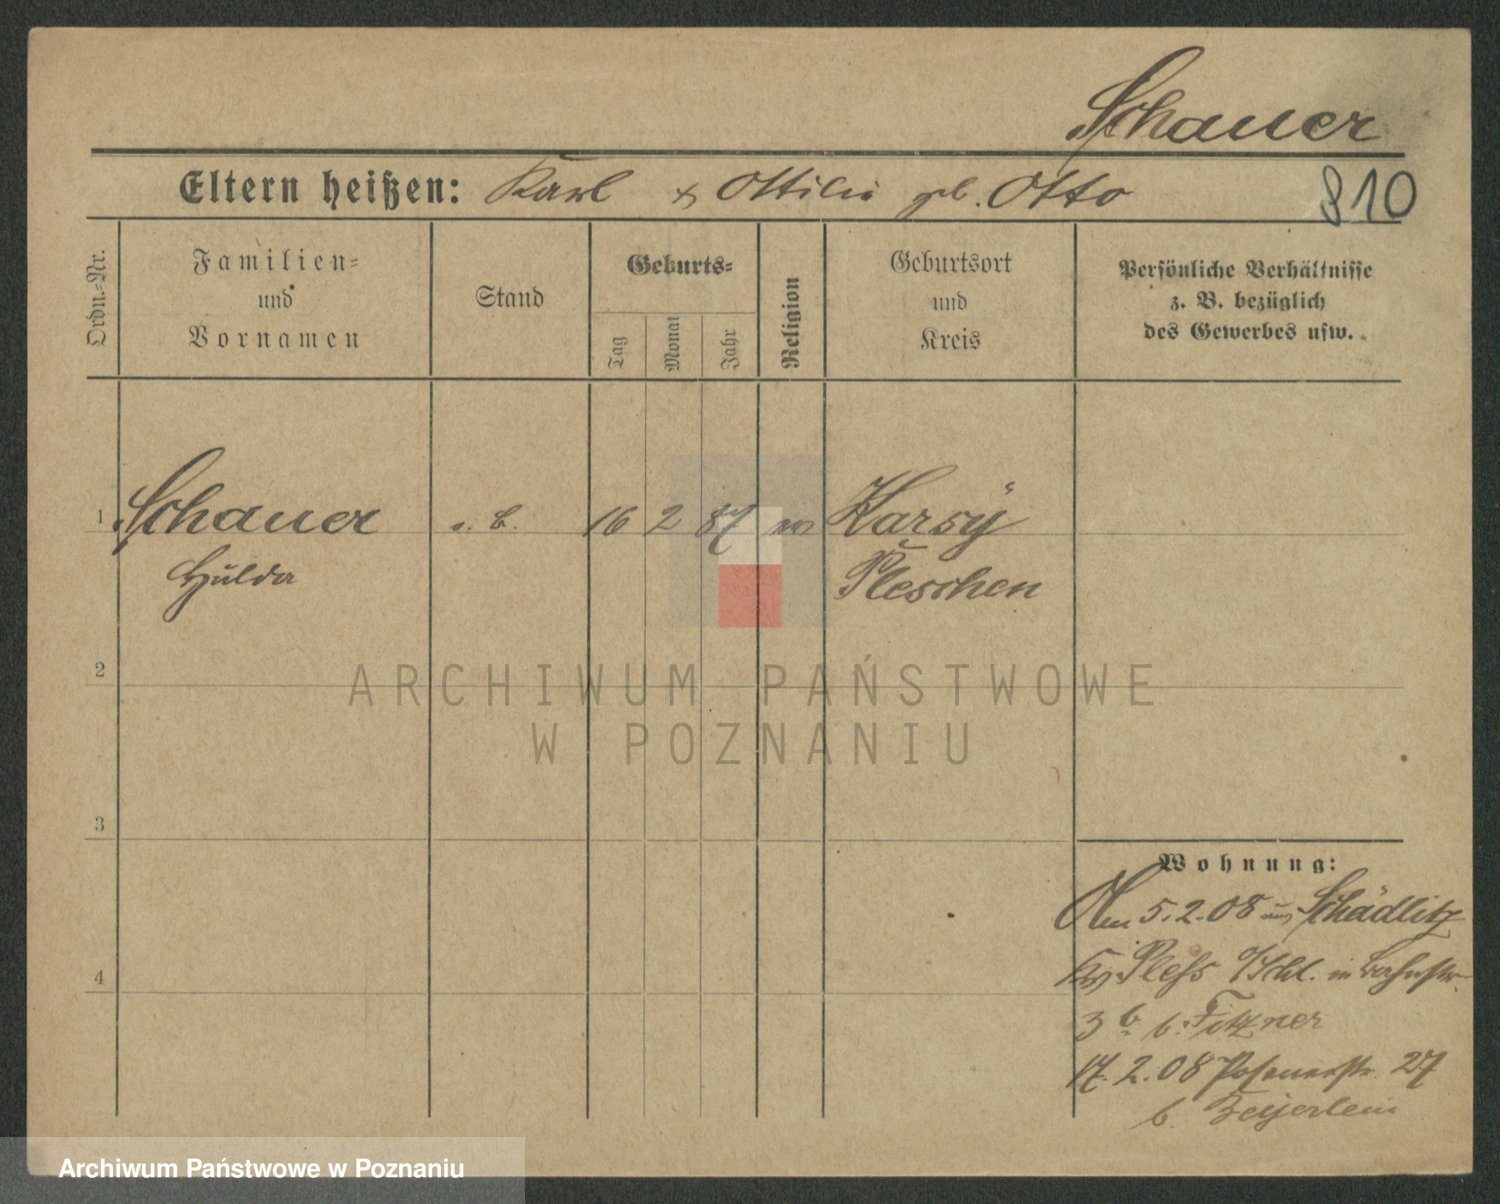 Schauer
Eltern heißen: Karl & Ottilie geb. Otto
810
Ordn.-Nr.
Familien-
und
Vornamen
Stand
Geburts-
Tag
Monat
Jahr
Religion
Geburtsort
und
Kreis
Persönliche Verhältnisse
z. B. bezüglich
des Gewerbes usw.
1 Schauer 16 2 87 ev Karsÿ
Hulda Pleschen
2
3
4
ARCHIWUM PAŃSTWOWE
W POZNANIU
Wohnung:
Am 5.2.08 aus Schädlitz
Kr Pleß O/Schl. in Bahnstr.
3 b b. Fitzner
17.2.08 Posenerstr. 27
b. Beyerlein
Archiwum Państwowe w Poznaniu